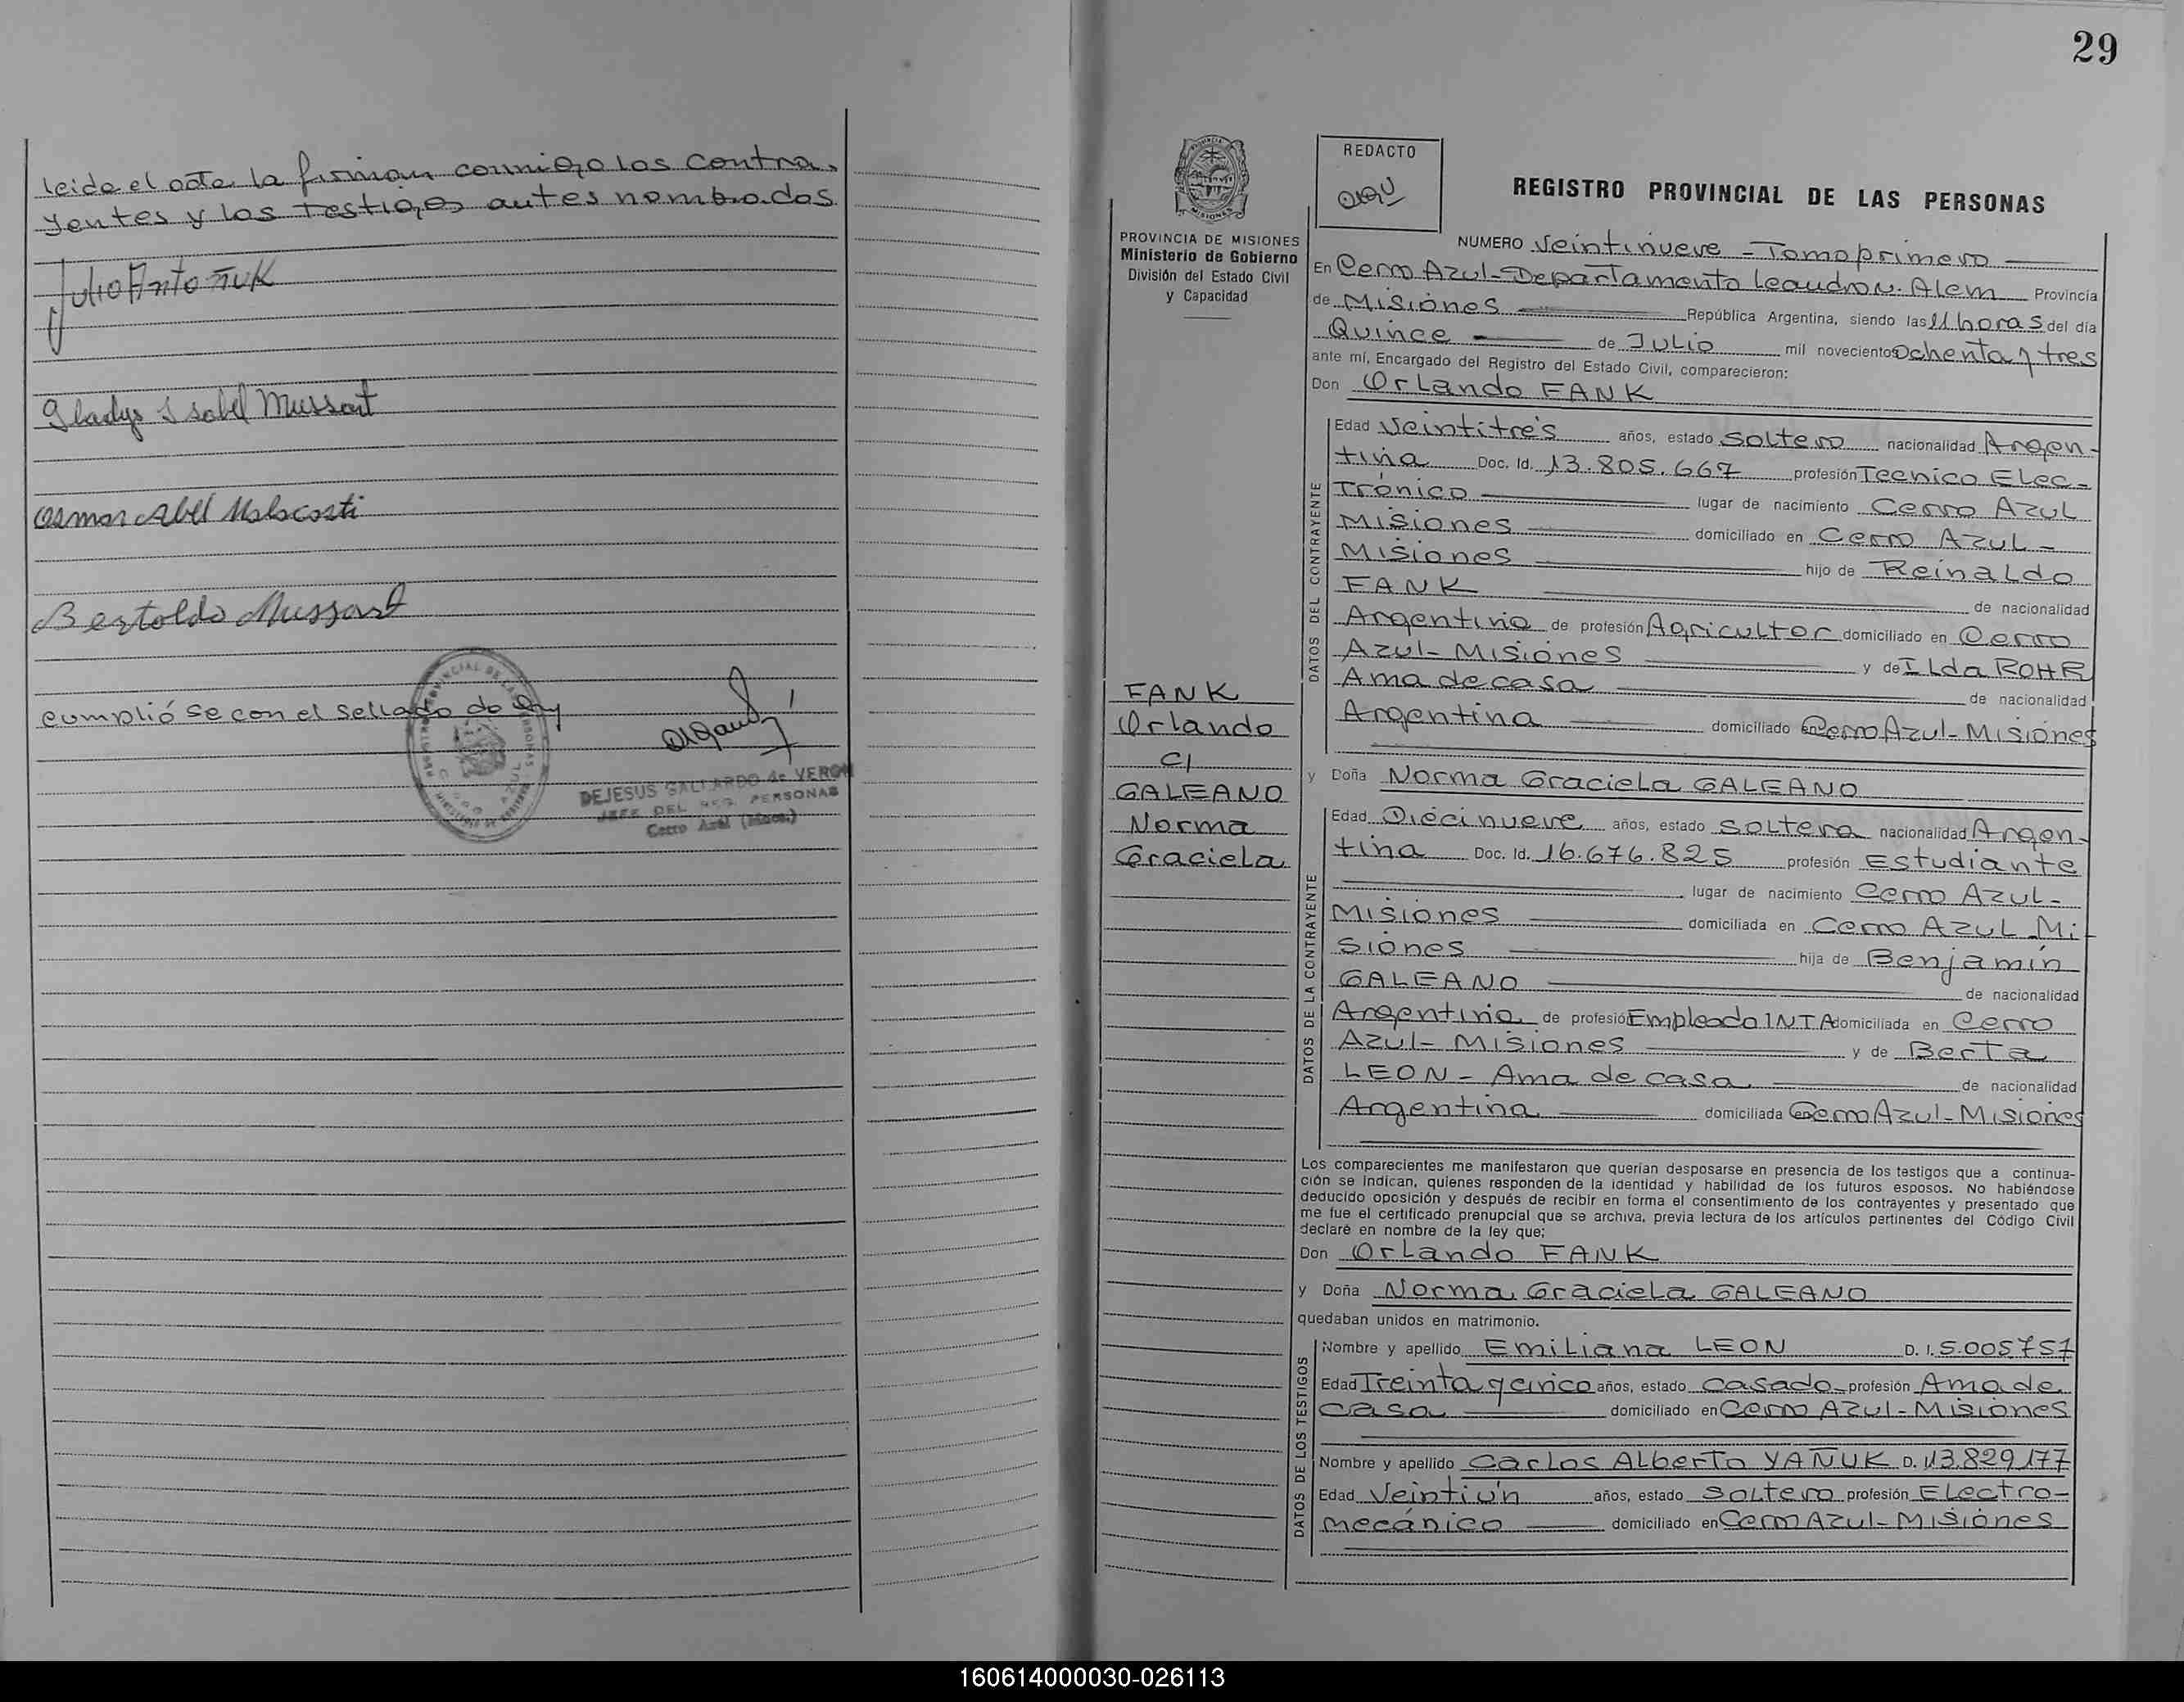 leida el acta la firman conmigo los contra.
yentes y los testigos antes nombrados.
Gladys Isabel Mussart
Osmar Abel Malacosti
Bertoldo Mussart
cumplió se con el sellado de ley
DEJESUS GALLARDO de VERON
JEFE DEL REG. PERSONAS
Cerro Azul (Mnes.)
29
PROVINCIA DE MISIONES
Ministerio de Gobierno
División del Estado Civil
y Capacidad
REDACTO
REGISTRO PROVINCIAL DE LAS PERSONAS
NUMERO Veintinueve - Tomo primero
En Cerro Azul - Departamento Leandro N. Alem Provincia
de Misiones República Argentina, siendo las 11 horas del día
Quince de Julio mil novecientos Ochenta y tres
ante mí, Encargado del Registro del Estado Civil, comparecieron:
Don Orlando FANK
DATOS DEL CONTRAYENTE
Edad Veintitrés años, estado Soltero nacionalidad Argen-
tina Doc. Id. 13.805.667 profesión Tecnico Elec-
Trónico lugar de nacimiento Cerro Azul
Misiones domiciliado en Cerro Azul -
Misiones hijo de Reinaldo
FANK de nacionalidad
Argentina de profesión Agricultor domiciliado en Cerro
Azul - Misiones y de ILda ROHR
Ama de casa de nacionalidad
Argentina domiciliado en Cerro Azul - Misiones
FANK
Orlando
c/
GALEANO
Norma
Graciela
y Doña Norma Graciela GALEANO
DATOS DE LA CONTRAYENTE
Edad Diecinueve años, estado Soltera nacionalidad Argen-
tina Doc. Id. 16.676.825 profesión Estudiante
lugar de nacimiento Cerro Azul -
Misiones domiciliada en Cerro Azul Mi-
siones hija de Benjamín
GALEANO de nacionalidad
Argentina de profesión Empleado INTA domiciliada en Cerro
Azul - Misiones y de Berta
LEON - Ama de casa de nacionalidad
Argentina domiciliada en Cerro Azul - Misiones
Los comparecientes me manifestaron que querían desposarse en presencia de los testigos que a continua-
ción se indican, quienes responden de la identidad y habilidad de los futuros esposos. No habiéndose
deducido oposición y después de recibir en forma el consentimiento de los contrayentes y presentado que
me fue el certificado prenupcial que se archiva, previa lectura de los artículos pertinentes del Código Civil
declaré en nombre de la ley que;
Don Orlando FANK
y Doña Norma Graciela GALEANO
quedaban unidos en matrimonio.
DATOS DE LOS TESTIGOS
Nombre y apellido Emiliana LEON D. I. 5.005.757
Edad Treinta y cinco años, estado Casado profesión Ama de
casa domiciliado en Cerro Azul - Misiones
Nombre y apellido Carlos Alberto YAÑUK D. I. 13.829.177
Edad Veintiún años, estado Soltero profesión Electro-
mecánico domiciliado en Cerro Azul - Misiones
160614000030-026113